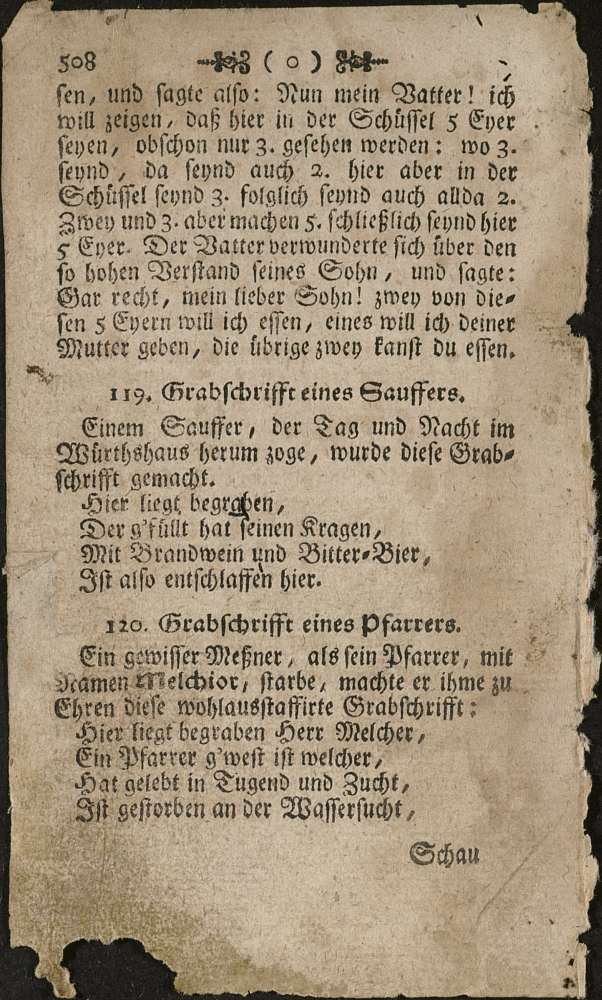 508 ( o )
sen, und sagte also: Nun mein Vatter! ich
will zeigen, daß hier in der Schüssel 5 Eyer
seyen, obschon nur 3. gesehen werden: wo 3.
seynd, da seynd auch 2. hier aber in der
Schüssel seynd 3. folglich seynd auch allda 2.
Zwey und 3. aber machen 5. schließlich seynd hier
5 Eyer. Der Vatter verwunderte sich über den
so hohen Verstand seines Sohn, und sagte:
Gar recht, mein lieber Sohn! zwey von die-
sen 5 Eyern will ich essen, eines will ich deiner
Mutter geben, die übrige zwey kanst du essen.
119. Grabschrifft eines Sauffers.
Einem Sauffer, der Tag und Nacht im
Würthshaus herum zoge, wurde diese Grab-
schrifft gemacht.
Hier liegt begraben,
Der g'füllt hat seinen Kragen,
Mit Brandwein und Bitter-Bier,
Ist also entschlaffen hier.
120. Grabschrifft eines Pfarrers.
Ein gewisser Meßner, als sein Pfarrer, mit
Namen Melchior, starbe, machte er ihme zu
Ehren diese wohlausstaffirte Grabschrifft:
Hier liegt begraben Herr Melcher,
Ein Pfarrer g'west ist welcher,
Hat gelebt in Tugend und Zucht,
Ist gestorben an der Wassersucht,
Schau